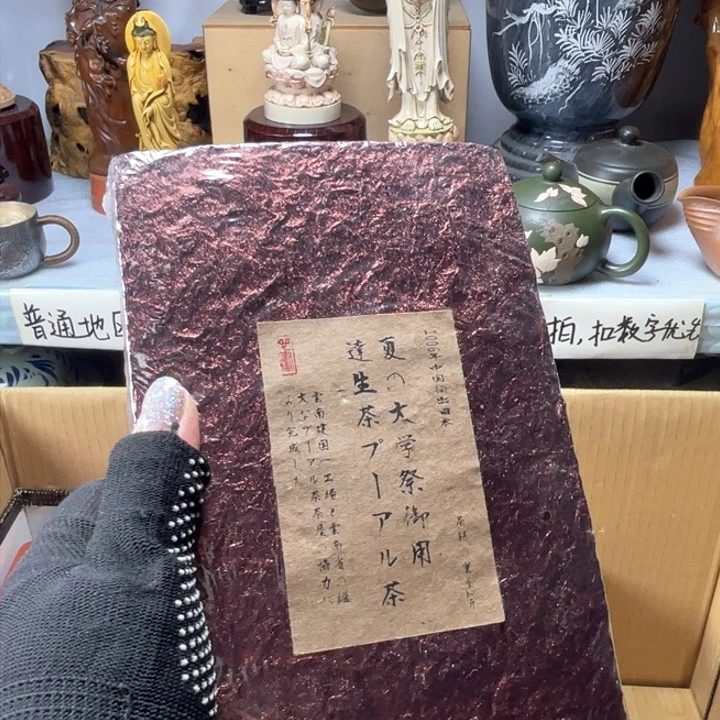 普通地
拍,扣数字优先
年中国輸出日本
夏の大学祭御用
達生茶プーアル茶
雲南建国 工場と雲南省の
大なプーアル茶茶 の協力に
より完成した